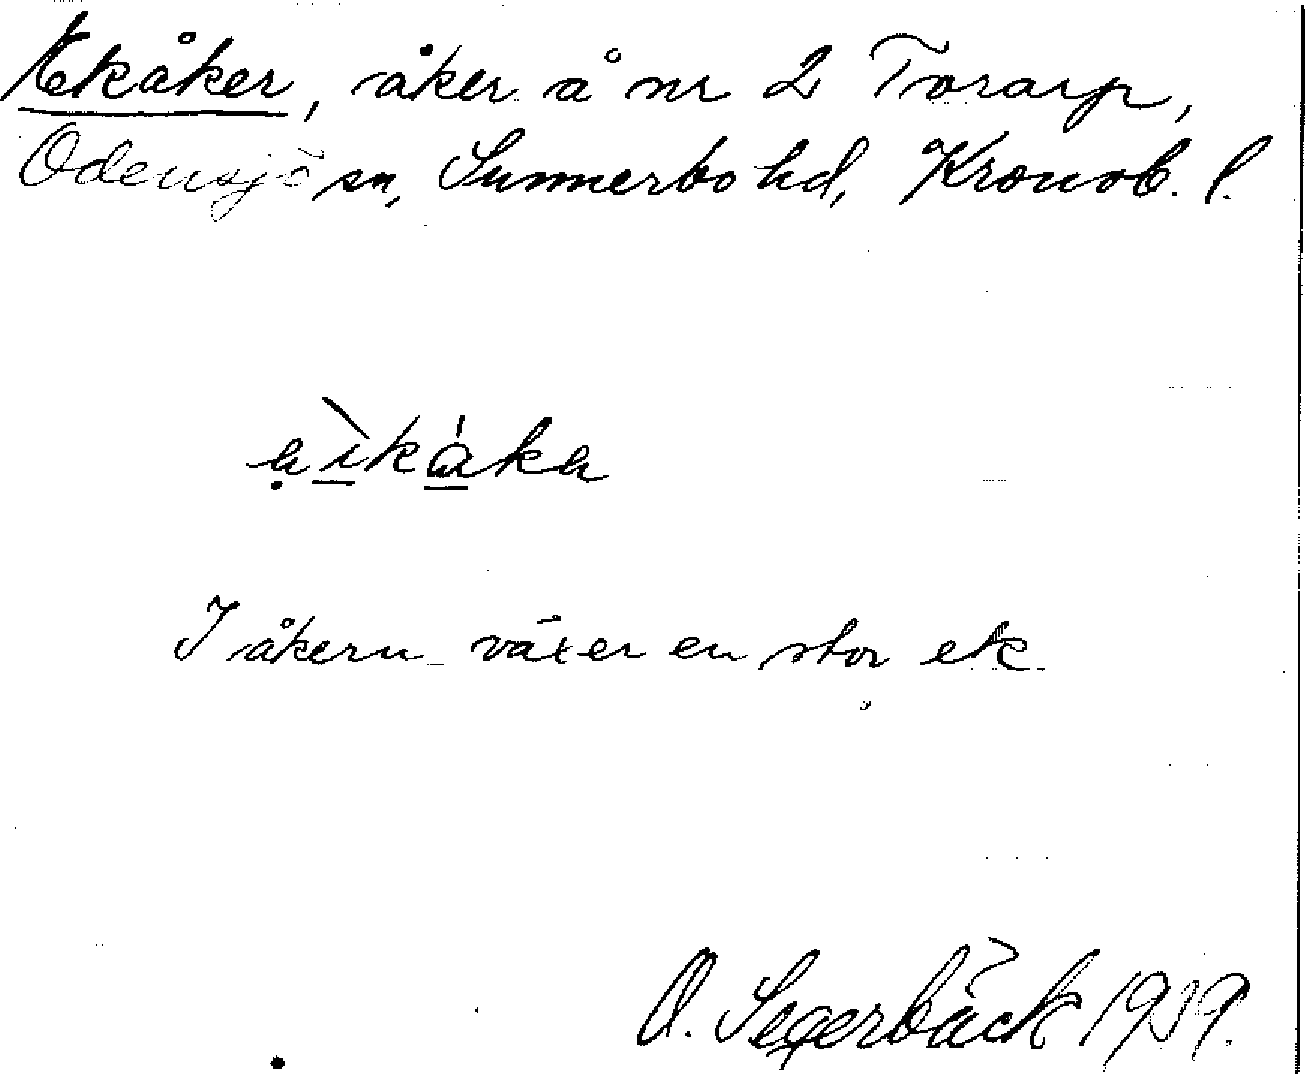 Ekåker, åker å nr 2 Torarp,
Odensjö sn, Sunnerbo hd, Kronob. l.
aìkáka
I åkern växer en stor ek.
O. Segerbäck 1939.